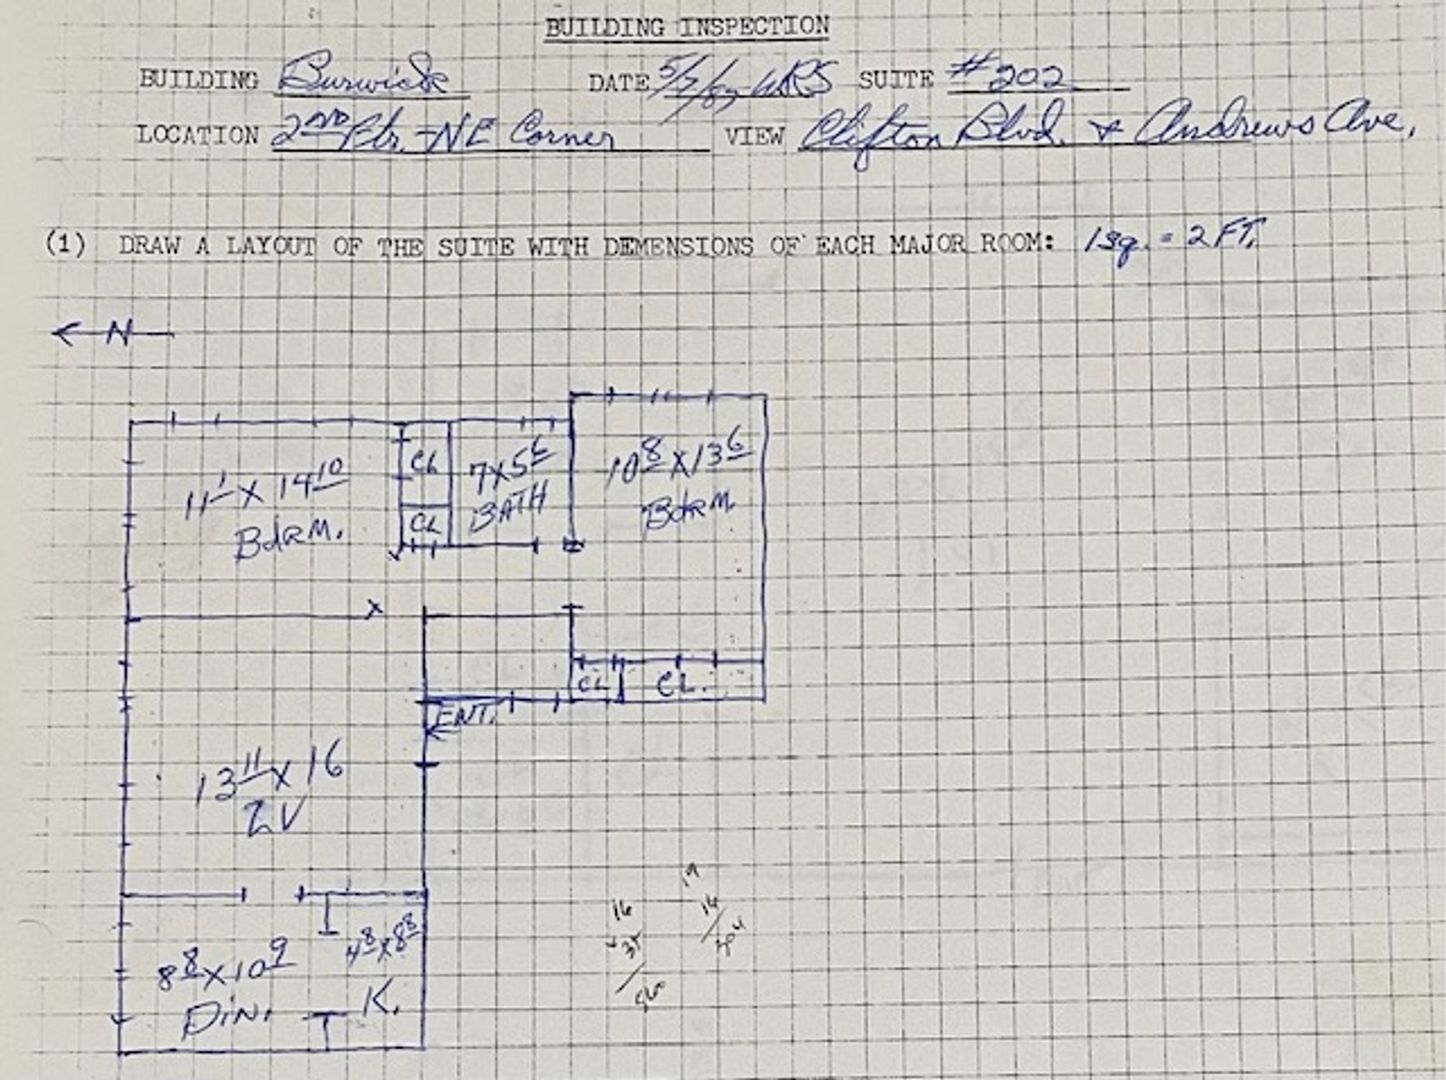 BUILDING INSPECTION
BUILDING Burwick DATE 5/7/87 WRS SUITE #202
LOCATION 2ND Flr. - NE Corner VIEW Clifton Blvd. & Andrews Ave.
(1) DRAW A LAYOUT OF THE SUITE WITH DEMENSIONS OF EACH MAJOR ROOM: 1 sq. = 2 FT.
← N
11 1 X 14 10
BdRM.
CL
CL
7 X 5 6
BATH
10 8 X 13 6
BdRM.
CL
CL.
ENT.
13 11 X 16
LV
8 8 X 10 9
DiN.
4 8 X 8 8
K.
16
35
560
19
16
304